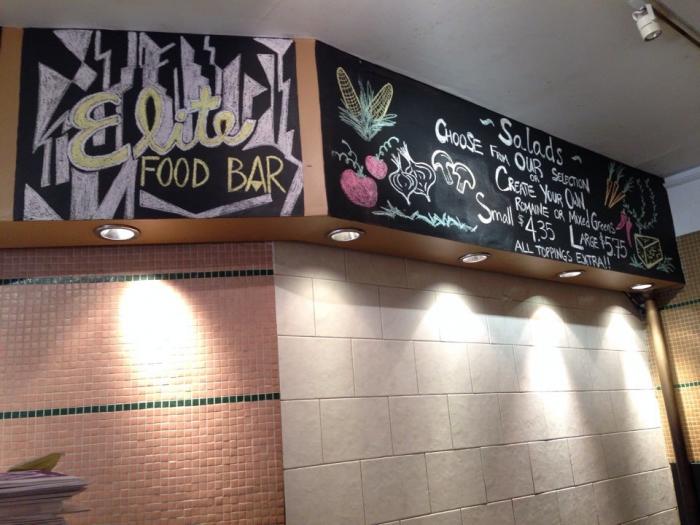 Elite
FOOD BAR
~ Salads ~
CHOOSE FROM OUR SELECTION
OR
CREATE YOUR OWN
ROMAINE OR MIXED GREENS
Small $4.35 LARGE $5.75
ALL TOPPINGS EXTRA!!